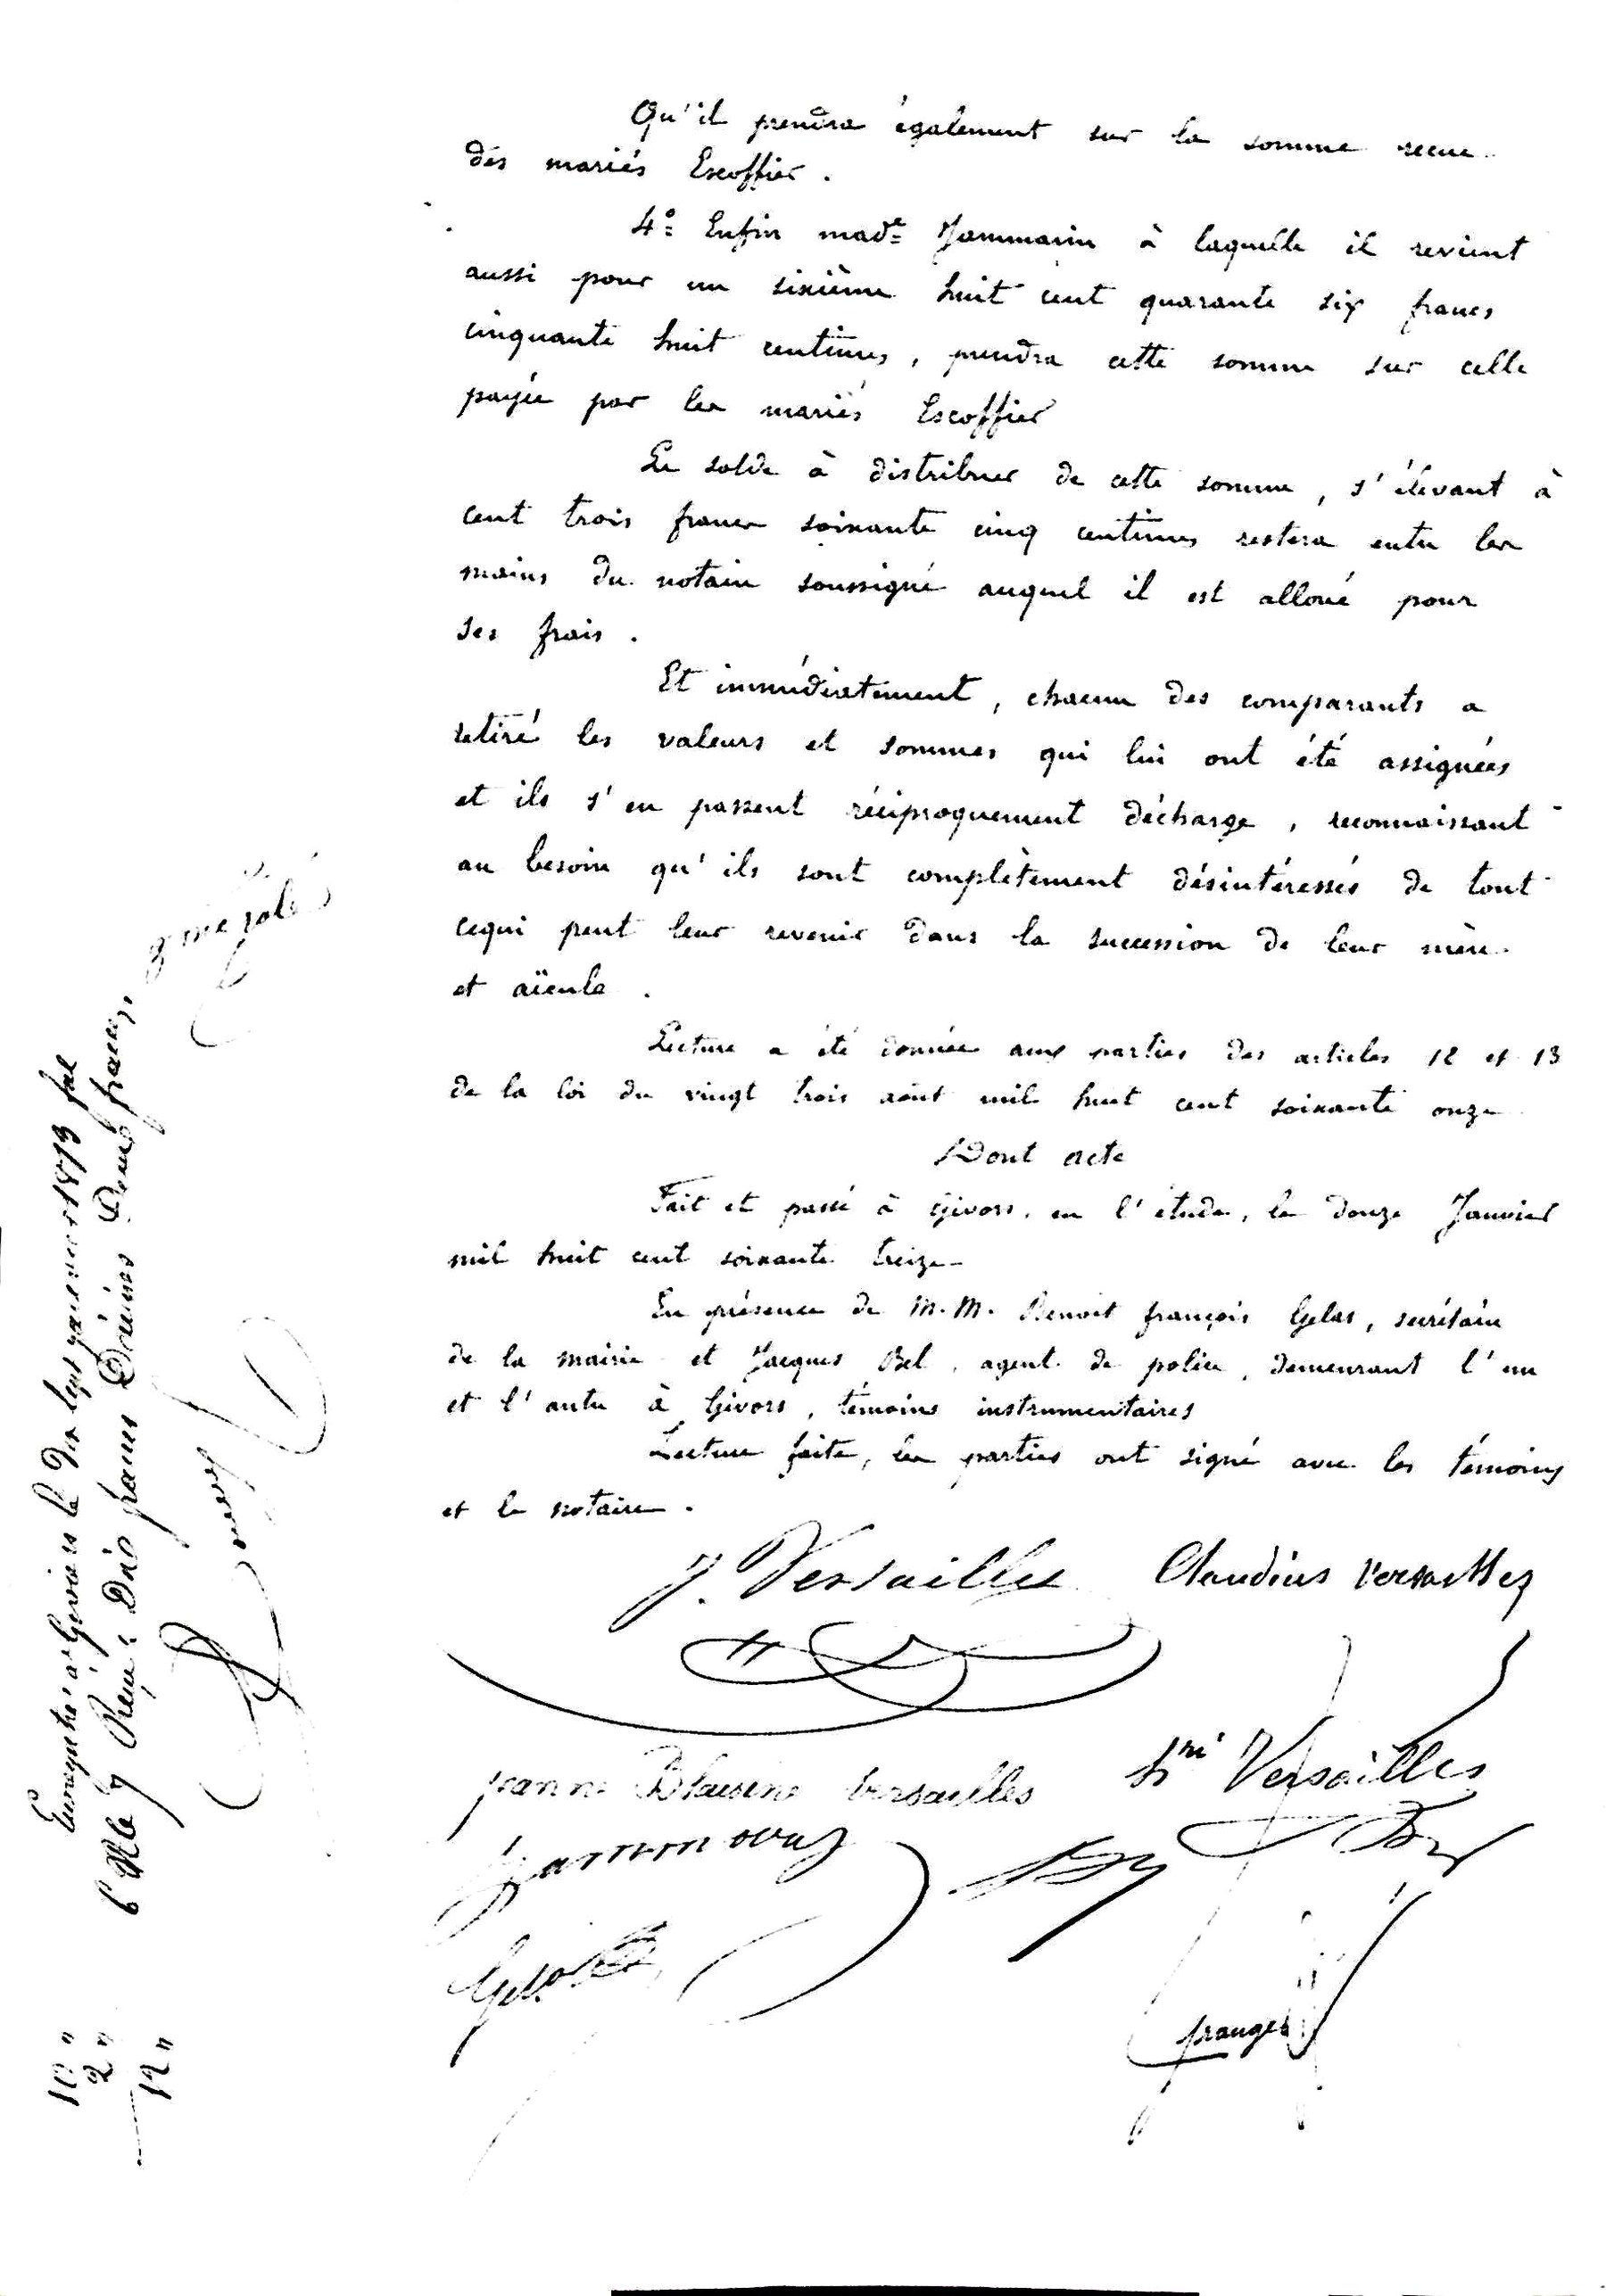 Qu'il prendra également sur la somme recue
des mariés Escoffier.
4° Enfin made Jammarin à laquelle il revient
aussi pour un sixième huit cent quarante six francs
cinquante huit centimes, prendra cette somme sur celle
payée par les mariés Escoffier
Le solde à distribuer de cette somme, s'élevant à
cent trois francs soixante cinq centimes restera entre les
mains du notaire soussigné auquel il est alloué pour
ses frais.
Et immédiatement, chacun des comparants a
retiré les valeurs et sommes qui lui ont été assignées
et ils s'en passent réciproquement décharge, reconnaissant
au besoin qu'ils sont complètement désintéressés de tout
cequi peut leur revenir dans la succession de leur mère
et aïeule.
Lecture a été donnée aux parties des articles 12 et 13
de la loi du vingt trois août mil huit cent soixante onze
Dont acte
Fait et passé à Givors, en l'étude, le douze Janvier
mil huit cent soixante treize
En présence de M.M. Benoit françois Gelas, secrétaire
de la mairie et Jacques Bel, agent de police, demeurant l'un
et l'autre à Givors, témoins instrumentaires
Lecture faite, les parties ont signé avec les témoins
et le notaire.
J. Versailles Claudius Versailles
jeanne Versailles Versailles
franges
Enregistré à Givors le dix sept janvier 1873 fol
Reçu: Dix francs Décimes Deux francs
10 "
2 "
12 "